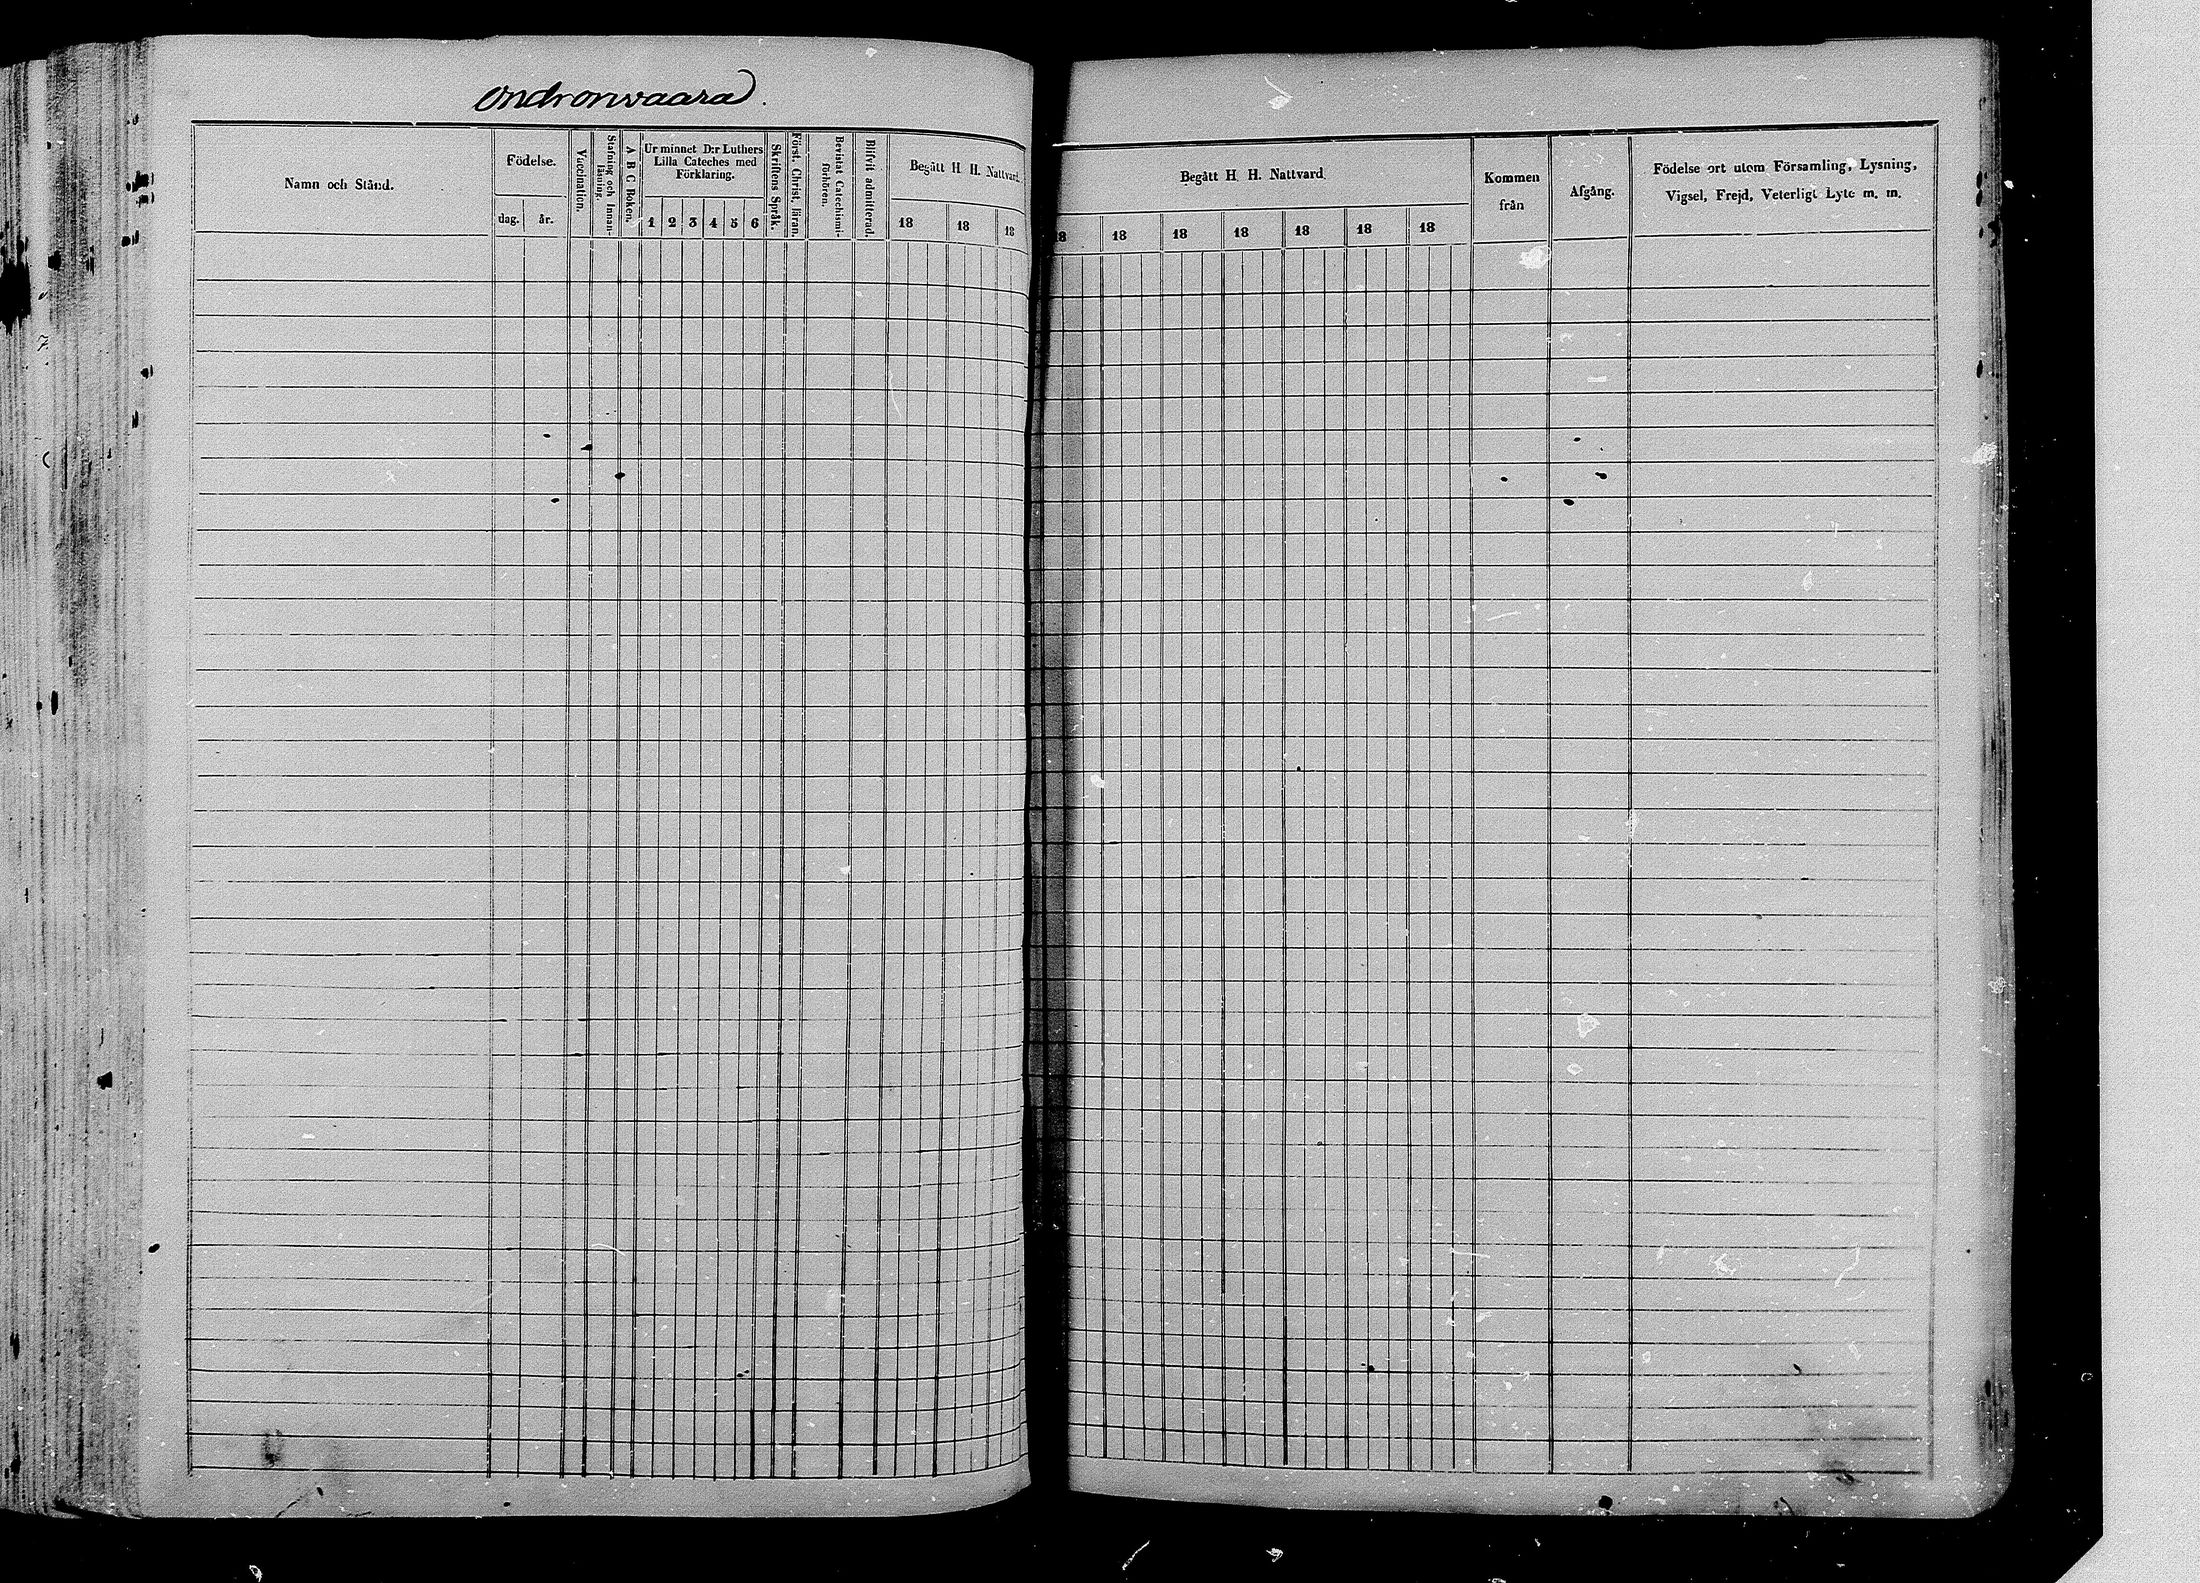 Ondronvaara.
Namn och Stånd.
Födelse.
dag.
år.
Vaccination.
Stafning och Innan-
läsning.
A B C Boken.
Ur minnet D:r Luthers
Lilla Cateches med
Förklaring.
1 2 3 4 5 6
Skriftens Språk.
Först. Christ. läran.
Bevistat Catechismi-
förhören.
Blifvit admitterad.
Begått H. H. Nattvard.
18 18 18
Begått H. H. Nattvard.
18 18 18 18 18 18 18
Kommen
från
Afgång.
Födelse ort utom Församling, Lysning,
Vigsel, Frejd, Veterligt Lyte m. m.